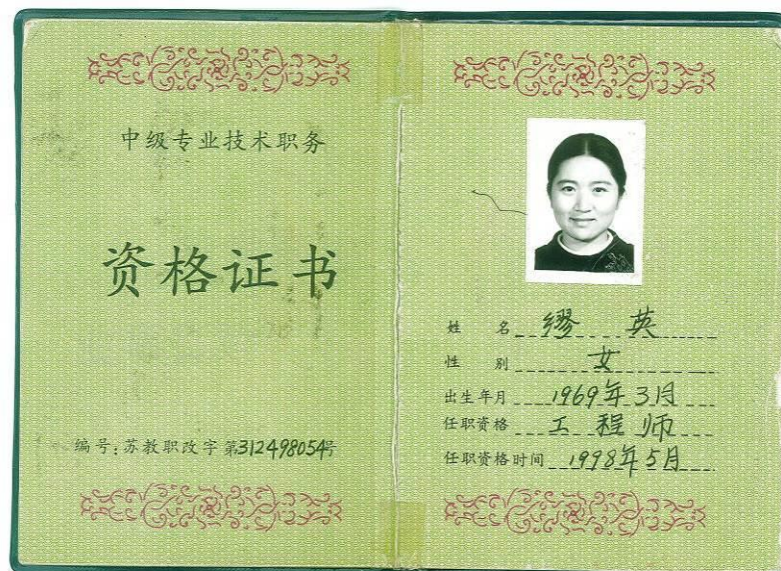 中级专业技术职务
资格证书
编号：苏教职改字第312498054号
姓名 缪英
性别 女
出生年月 1969年3月
任职资格 工程师
任职资格时间 1998年5月